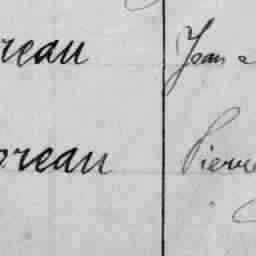 reau Jean
oreau Pierre